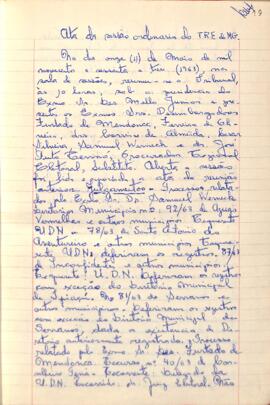 Ata da sessão ordinaria do T.R.E. de M.G.
No dia onze (11) de Maio de mil
novecentos e sessenta e tres (1963) na
sala de sessões, reuniu-se o Tribunal,
às 10 horas, sob a presidencia do
Exmo Sr. Des. Mello Junior e pre-
sentes os Exmos. Srs. Desembargadores
Furtado de Mendonça, Ferreira de Oli-
veira, drs. Corrêa de Almeida, Cesar
Silveira, Samuel Werneck e dr. José
Pinto Eleitoral, substituto. Aberta a sessão
foi lida e aprovada a ata da reunião
anterior. Julgamentos - Processos relata-
dos pelo Exmo Sr. Dr. Samuel Werneck
Diretorios Municipais nº: 92/63 de Aguas
Vermelhas e outros municipios. Requerente
U.D.N. - 78/63 de Santo Antonio do
Aventureiro e outros municipios. Reque-
rente UDN: deferiram os registros. 87/63
de Inconfidentes e outros municipios.
Requerente: U.D.N. Deferiram os registros
com exceção do Diretorio Municipal
de Ipiaçú. Nº 81/63 de Serranos e
outros municipios. Deferiram os registros
com exceção do Diretorio Municipal de
Serranos, dada a existencia de Di-
retorio anteriormente registrado. Processo
relatado pelo Exmo. Sr. Des. Furtado de
Mendonça. Recurso nº 40/63 de Con-
selheiro Pena. Recorrente: Delegado da
U.D.N. Recorrido: dr. Juiz Eleitoral. Não